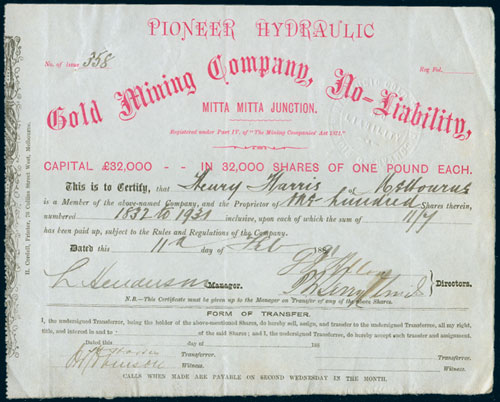 PIONEER HYDRAULIC
No. of issue 358
Reg Fol.
Gold Mining Company, No-Liability,
MITTA MITTA JUNCTION.
Registered under Part IV. of "The Mining Companies' Act 1871."
CAPITAL £32,000 -- IN 32,000 SHARES OF ONE POUND EACH.
This is to Certify, that Henry Harris of Melbourne
is a Member of the above-named Company, and the Proprietor of One hundred Shares therein,
numbered 1832 to 1931 inclusive, upon each of which the sum of 11/7
has been paid up, subject to the Rules and Regulations of the Company.
Dated this 11th day of Feb 189
L Henderson Manager.
Directors.
N.B.—This Certificate must be given up to the Manager on Transfer of any of the above Shares.
FORM OF TRANSFER.
I, the undersigned Transferror, being the holder of the above-mentioned Shares, do hereby sell, assign, and transfer to the undersigned Transferree, all my right,
title, and interest in and to of the said Shares; and I, the undersigned Transferree, do hereby accept such transfer and assignment.
Dated this day of 188
Transferror. Transferree.
Witness. Witness.
CALLS WHEN MADE ARE PAYABLE ON SECOND WEDNESDAY IN THE MONTH.
Printer, 76 Collins Street West, Melbourne.